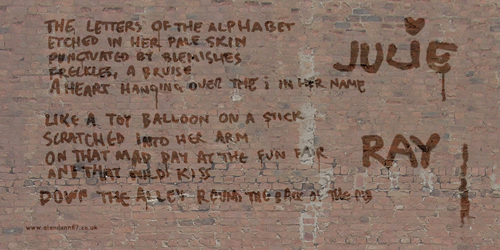 THE LETTERS OF THE ALPHABET
ETCHED IN HER PALE SKIN
PUNCTUATED BY BLEMISHES
FRECKLES, A BRUISE
A HEART HANGING OVER THE i IN HER NAME
JULIE
LIKE A TOY BALLOON ON A STICK
SCRATCHED INTO HER ARM
ON THAT MAD DAY AT THE FUN FAIR
AND THAT WILD KISS
RAY
DOWN THE ALLEY ROUND THE BACK OF THE PUB